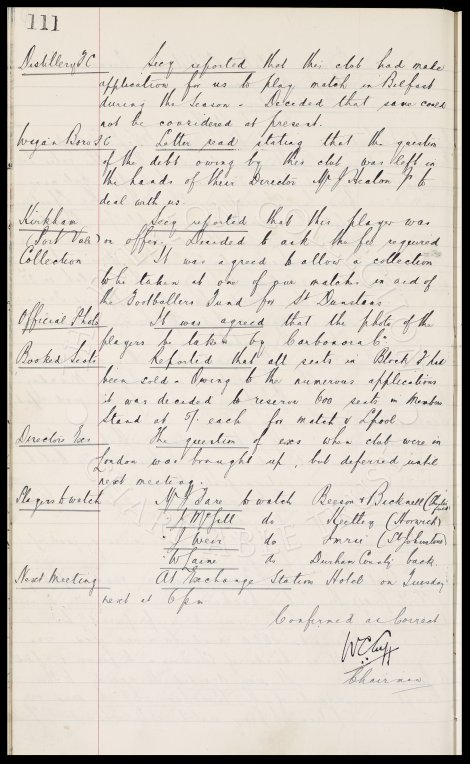 111
Distillery F C Secy reported that this club had made
application for us to play match in Belfast
during the Season - Decided that same could
not be considered at present.
Wigan Boro F C Letter read stating that the question
of the debt owing by this club was left in
the hands of their Director Mr J Healon Jr to
deal with us.
Kirkham Secy reported that this player was
(Port Vale) on offer. Decided to ask the fee required
Collection It was agreed to allow a collection
to be taken at one of our matches in aid of
the Footballers Fund for St Dunstans
Official Photo It was agreed that the photo of the
players be taken by Carbonora Co
Booked Seats Reported that all seats in Block I had
been sold - Owing to the numerous applications
it was decided to reserve 600 seats in Members
Stand at 5/- each for match v L'pool.
Directors Exes The question of exes when club were in
London was brought up, but deferred until
next meeting.
Players to watch Mr to watch Beeson & Bicknell
do (Horwich)
" J Weir do Imrie (St Johnstone)
do Durham County back.
Next Meeting At Exchange Station Hotel on Tuesday
next at 6 pm
Confirmed as Correct
W C Cuff
Chairman